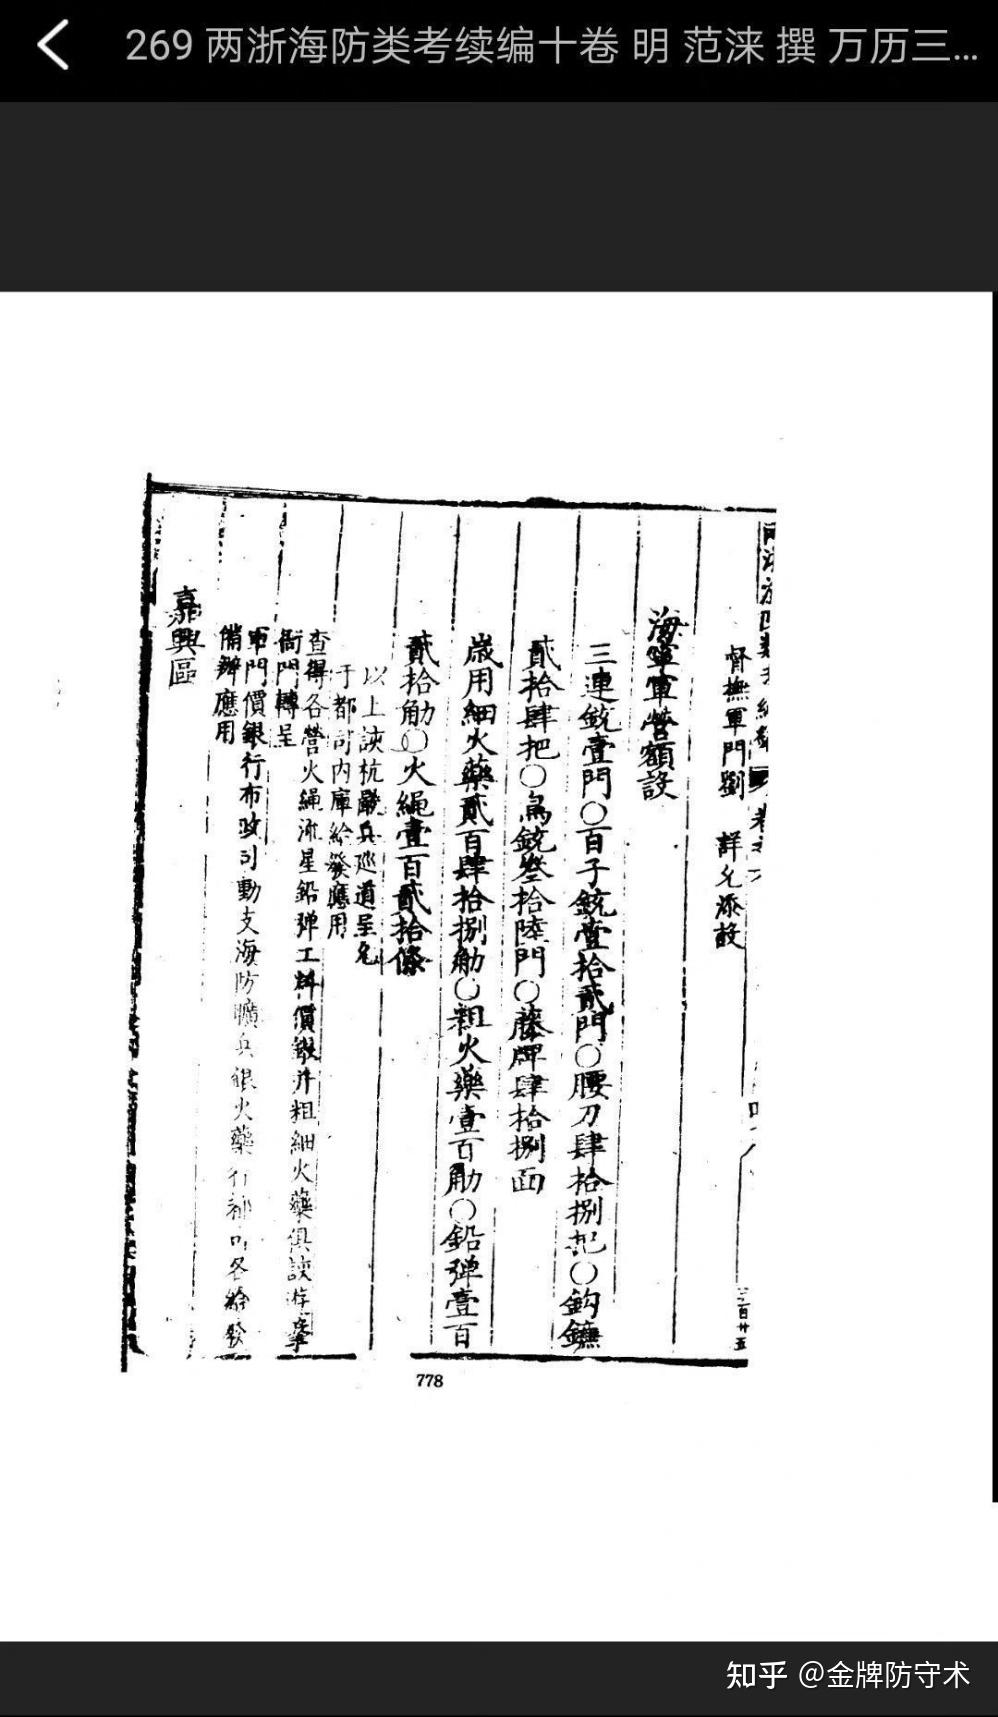 269 两浙海防类考续编十卷 明 范涞 撰 万历三...
督撫軍門劉 詳允添設
海寧軍營額設
三連銃壹門〇百子銃壹拾貳門〇腰刀肆拾捌把〇鈎鐮
貳拾肆把〇鳥銃叁拾陸門〇藤牌肆拾捌面
歲用細火藥貳百肆拾捌觔〇粗火藥壹百觔〇鉛彈壹百
貳拾觔〇火繩壹百貳拾條
以上該杭嚴兵巡道呈允
于都司内庫給發應用
查得各營火繩流星鉛彈工料價銀并粗細火藥俱該
衙門轉呈
軍門價銀行布政司動支海防曠兵銀火藥行都司各給發
備辦應用
嘉興區
三百廿五
778
知乎 @金牌防守术